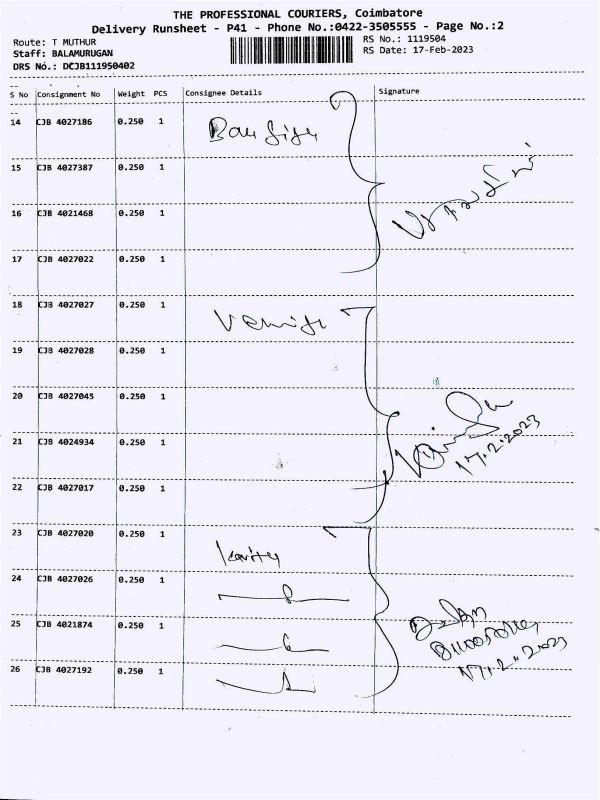 THE PROFESSIONAL COURIERS, Coimbatore
Delivery Runsheet - P41 - Phone No.:0422-3505555 - Page No.:2
Route: T MUTHUR
RS No.: 1119504
Staff: BALAMURUGAN
RS Date: 17-Feb-2023
DRS No.: DCJB111950402
S No Consignment No Weight PCS Consignee Details Signature
14 CJB 4027186 0.250 1
15 CJB 4027387 0.250 1
16 CJB 4021468 0.250 1
17 CJB 4027022 0.250 1
18 CJB 4027027 0.250 1
19 CJB 4027028 0.250 1
20 CJB 4027045 0.250 1
21 CJB 4024934 0.250 1
17.2.2023
22 CJB 4027017 0.250 1
23 CJB 4027020 0.250 1
24 CJB 4027026 0.250 1
25 CJB 4021874 0.250 1
17.2.2023
26 CJB 4027192 0.250 1